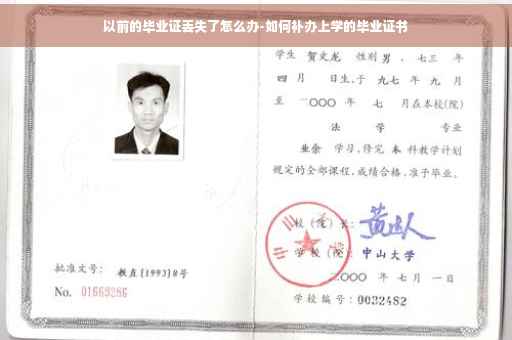 以前的毕业证丢失了怎么办-如何补办上学的毕业证书
学生 贺文龙 性别 男，七三 年
四 月 日生，于 九七 年 九 月
至 二〇〇〇 年 七 月在本校(院)
法 学 专业
业余 学习，修完 本 科教学计划
规定的全部课程，成绩合格，准予毕业。
校（院）长：
学 校（院）： 中山大学
二〇〇〇 年 七 月 一 日
学校编号：0032482
批准文号： 教直[1993]8号
No. 01663286